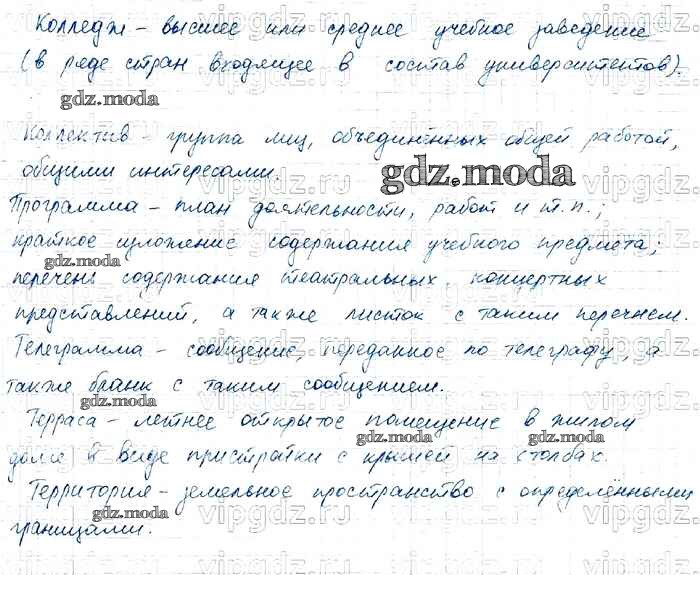 Колледж – высшее или среднее учебное заведение
(в ряде стран входящее в состав университетов).
gdz.moda
Коллектив – группа лиц, объединённых общей работой,
общими интересами.
gdz.moda
Программа – план деятельности, работ и т.п.;
краткое изложение содержания учебного предмета;
gdz.moda
перечень содержания театральных, концертных
представлений, а также листок с таким перечнем.
Телеграмма – сообщение, переданное по телеграфу, а
также бланк с таким сообщением.
gdz.moda
Терраса – летнее открытое помещение в жилом
gdz.moda
доме в виде пристройки с крышей на столбах.
Территория – земельное пространство с определёнными
gdz.moda
границами.